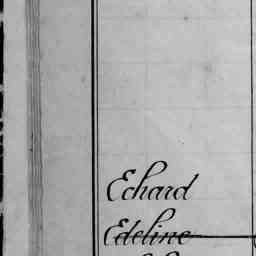 Echard
Edeline